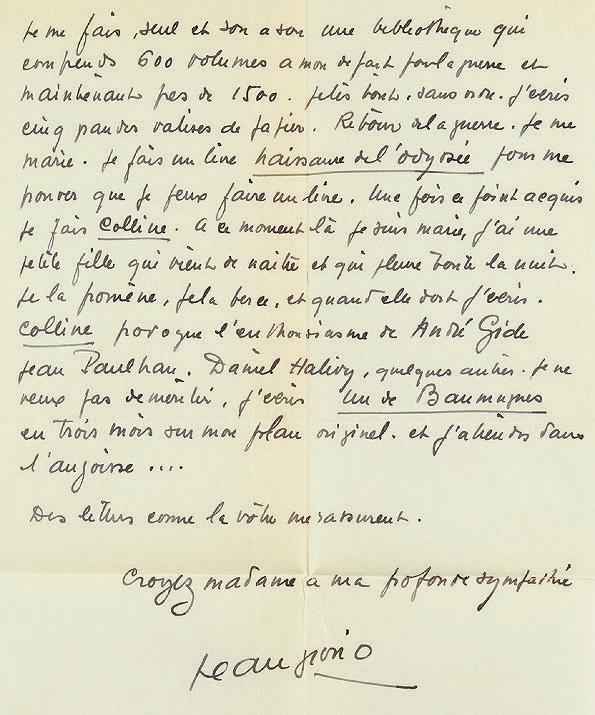 Je me fais, seul et son a son une bibliothèque qui
comprends 600 volumes a mon depart pour la guerre et
maintenant pres de 1500. Je lis tout, sans ordre. J'écris
cinq grandes valises de papier. Retour de la guerre. Je me
marie. Je fais un livre naissance de l'odyssée pour me
prouver que je peux faire un livre. Une fois ce point acquis
je fais Colline. A ce moment là je suis marié, j'ai une
petite fille qui vient de naitre et qui pleure toute la nuit.
Je la promène, je la berce, et quand elle dort j'écris.
Colline provoque l'enthousiasme de André Gide
Jean Paulhan. Daniel Halévy, quelques autres. Je ne
veux pas démentir, j'écris Un de Baumugnes
en trois mois sur mon plan originel. et j'attends dans
l'angoisse ....
Des lettres comme la vôtre me rassurent.
Croyez madame a ma profonde sympathie
Jean giono